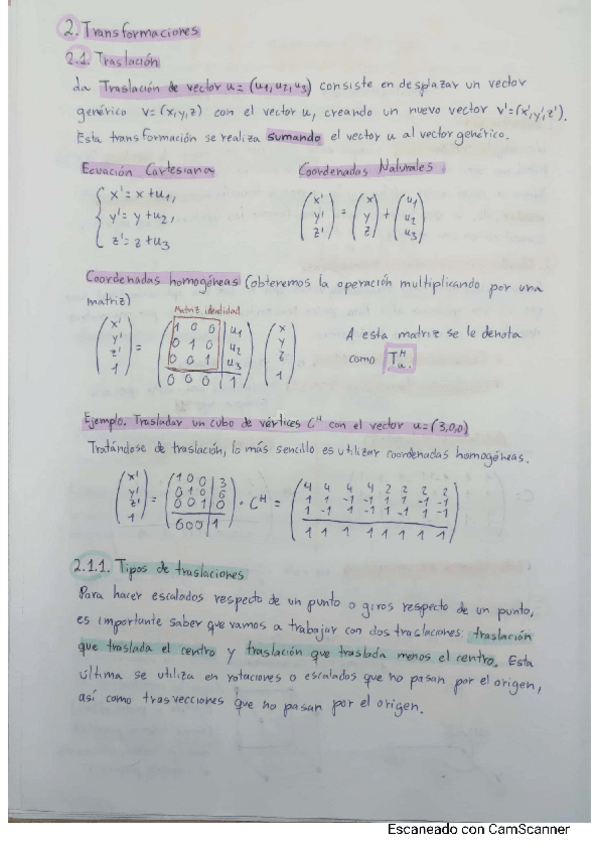 2. Transformaciones
2.1. Traslación
La Traslación de vector u = (u1, u2, u3) consiste en desplazar un vector
genérico v=(x,y,z) con el vector u, creando un nuevo vector v'=(x',y',z').
Esta transformación se realiza sumando el vector u al vector genérico.
Ecuación Cartesiana
Coordenadas Naturales
{ x' = x + u1,
y' = y + u2,
z' = z + u3
(x' y' z') = (x y z) + (u1 u2 u3)
Coordenadas homogéneas (obtenemos la operación multiplicando por una
matriz)
Matriz identidad
(x' y' z' 1) = (1 0 0 | u1
0 1 0 | u2
0 0 1 | u3
0 0 0 | 1) (x y z 1)
A esta matriz se le denota
como T_u^H.
Ejemplo. Trasladar un cubo de vértices C^H con el vector u=(3,0,0)
Tratándose de traslación, lo más sencillo es utilizar coordenadas homogéneas.
(x' y' z' 1) = (1 0 0 | 3
0 1 0 | 0
0 0 1 | 0
0 0 0 | 1) · C^H = (4 4 4 4 2 2 2 2
1 1 -1 -1 1 1 -1 -1
1 -1 1 -1 1 -1 1 -1
1 1 1 1 1 1 1 1)
2.1.1. Tipos de traslaciones
Para hacer escalados respecto de un punto o giros respecto de un punto,
es importante saber que vamos a trabajar con dos traslaciones: traslación
que traslada el centro y traslación que traslada menos el centro. Esta
última se utiliza en rotaciones o escalados que no pasan por el origen,
así como trasvecciones que no pasan por el origen.
Escaneado con CamScanner